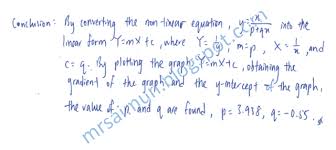 Conclusion: By converting the non-linear equation, y = x/(p+qx) into the
linear form Y=mX+c, where Y = , m=p, X = 1/x, and
c = q. By plotting the graph Y=mX+c, obtaining the
gradient of the graph and the y-intercept of the graph,
the value of p and q are found, p = 3.938, q = -0.55.
mrsaimun.blogspot.com